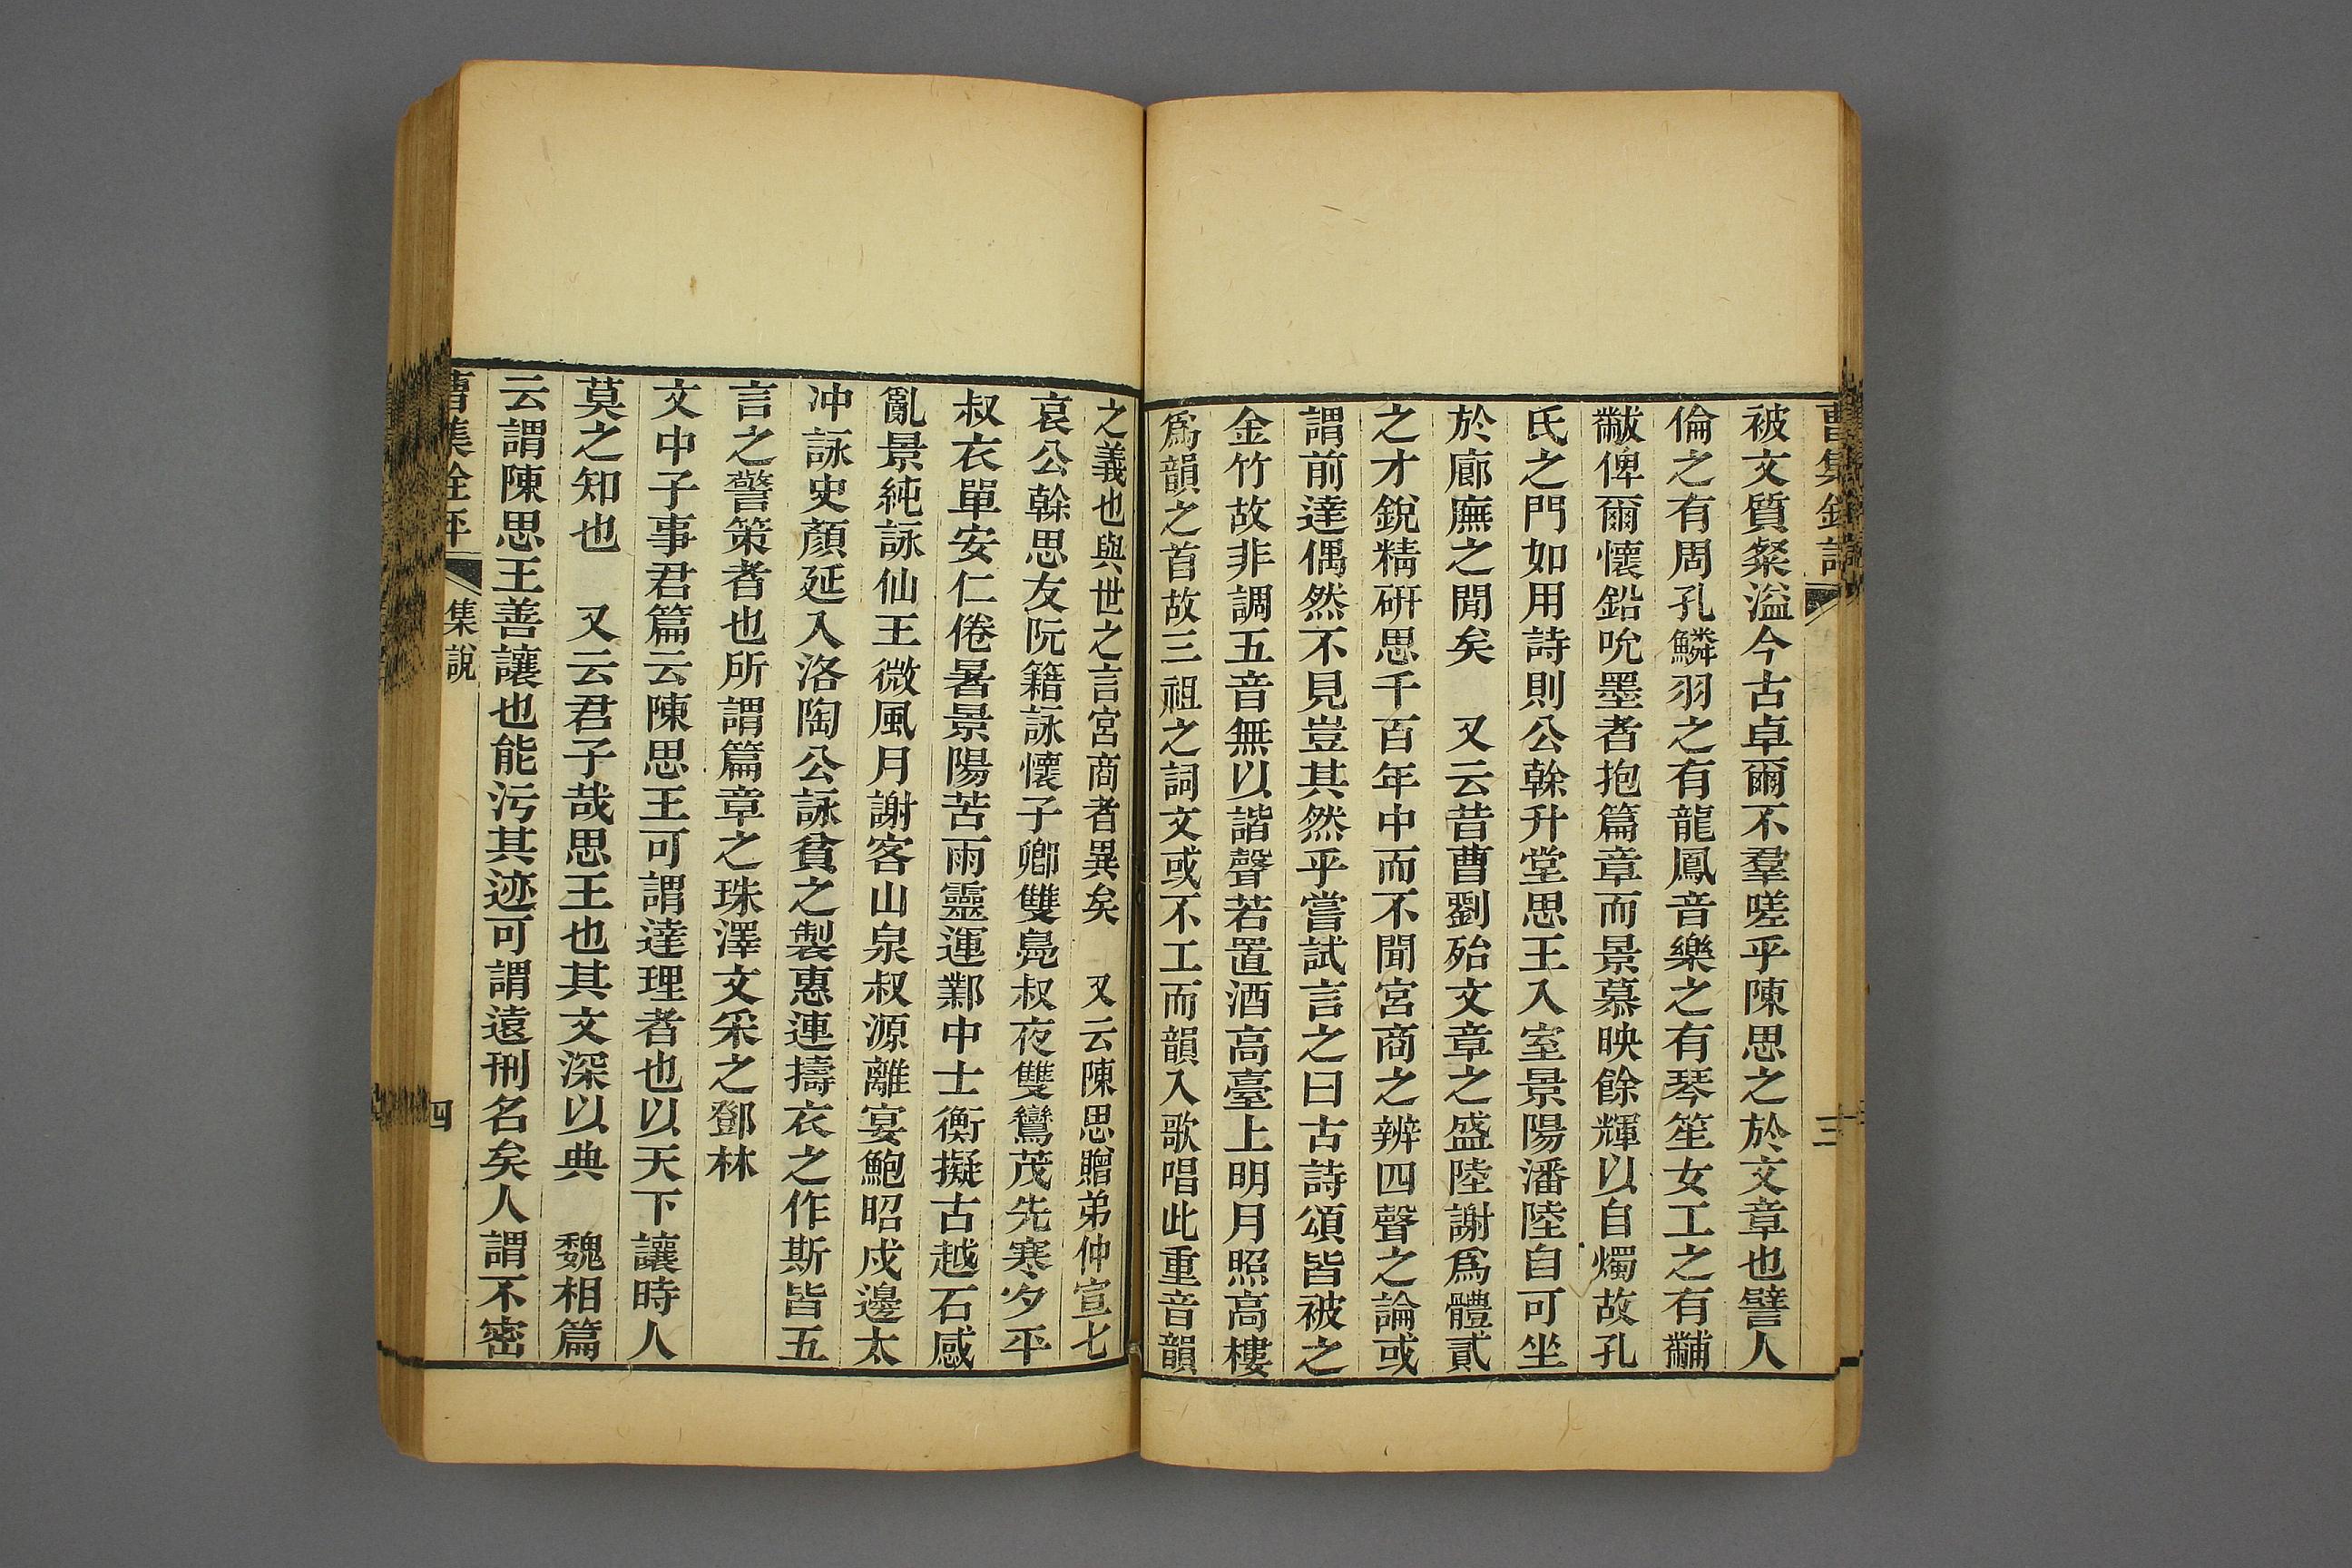 被文質粲溢今古卓爾不羣嗟乎陳思之於文章也譬人
倫之有周孔鱗羽之有龍鳳音樂之有琴笙女工之有黼
黻俾爾懷鉛吮墨者抱篇章而景慕映餘輝以自燭故孔
氏之門如用詩則公榦升堂思王入室景陽潘陸自可坐
於廊廡之閒矣　又云昔曹劉殆文章之盛陸謝爲體貳
之才銳精硏思千百年中而不聞宮商之辨四聲之論或
謂前達偶然不見豈其然乎嘗試言之曰古詩頌皆被之
金竹故非調五音無以諧聲若置酒高臺上明月照高樓
爲韻之首故三祖之詞文或不工而韻入歌唱此重音韻
之義也與世之言宮商者異矣　又云陳思贈弟仲宣七
哀公榦思友阮籍詠懷子卿雙鳧叔夜雙鸞茂先寒夕平
叔衣單安仁倦暑景陽苦雨靈運鄴中士衡擬古越石感
亂景純詠仙王微風月謝客山泉叔源離宴鮑昭戍邊太
冲詠史顏延入洛陶公詠貧之製惠連擣衣之作斯皆五
言之警策者也所謂篇章之珠澤文采之鄧林
文中子事君篇云陳思王可謂達理者也以天下讓時人
莫之知也　又云君子哉思王也其文深以典　魏相篇
云謂陳思王善讓也能污其迹可謂遠刑名矣人謂不密
曹集銓評
集說
四